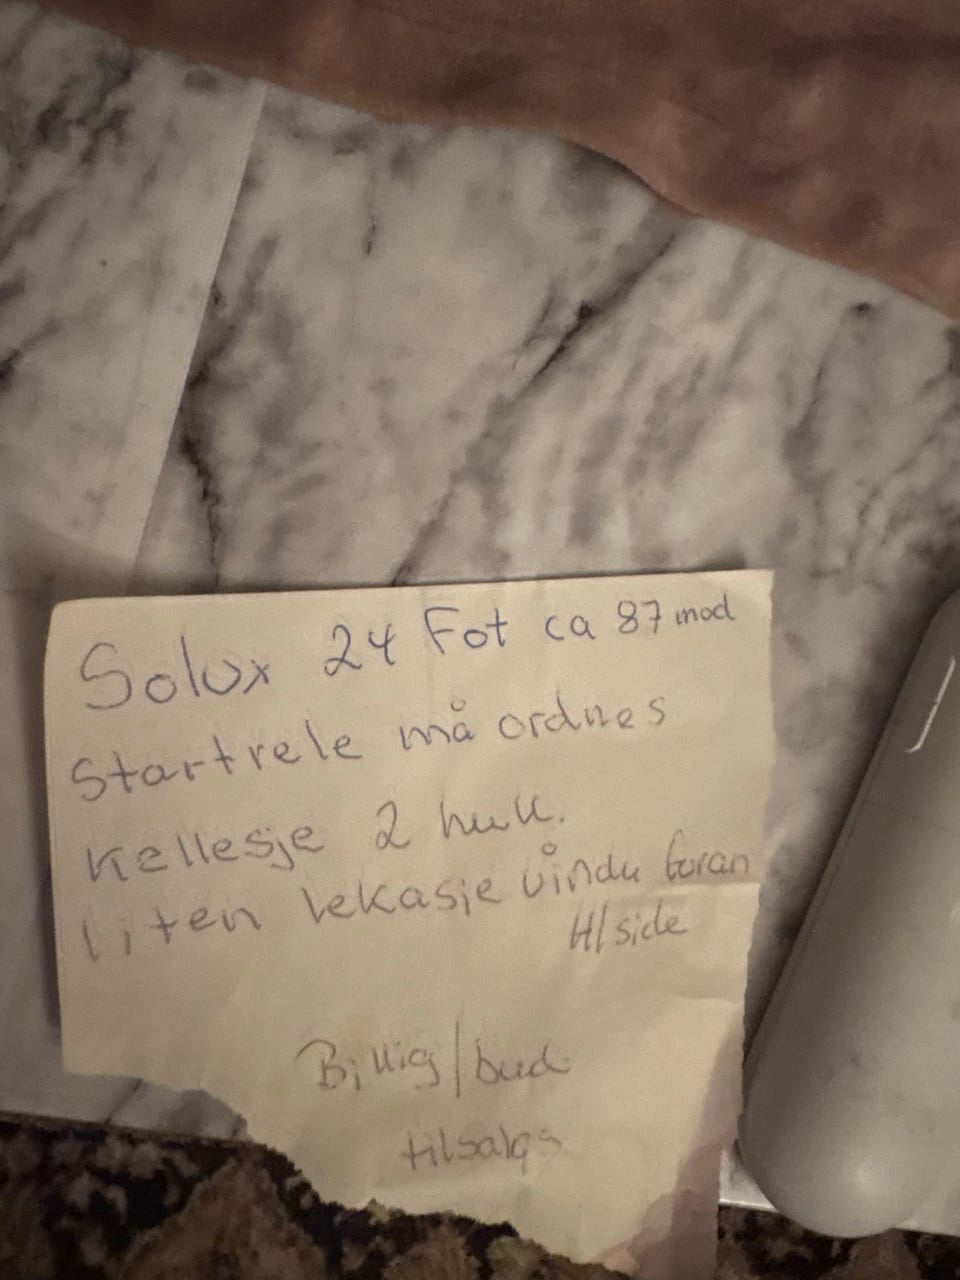 Solux 24 Fot ca 87 mod
Startrele må ordnes
Kallesje 2 hull.
liten lekasje vindu foran
H/side
Billig/bud
tilsalgs